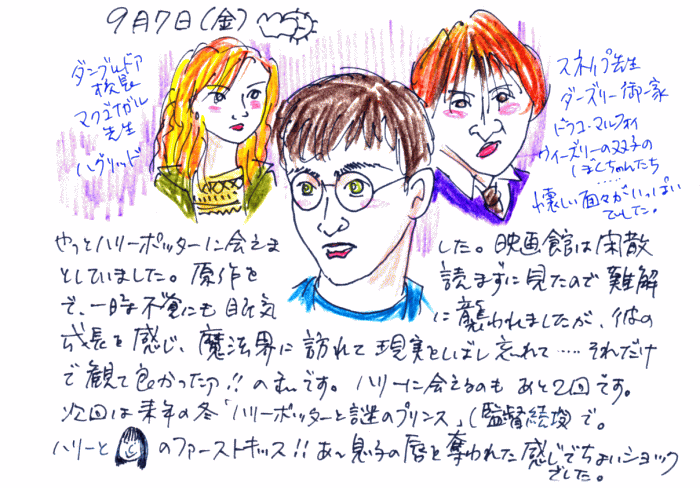 9月7日(金)
ダンブルドア
校長
マクゴナガル
先生
ハグリッド
スネイプ先生
ダーズリー御一家
ドラコ・マルフォイ
ウィーズリーの双子の
ぼくちゃんたち
……
懐しい面々がいっぱい
でした。
やっとハリーポッターに会えま した。映画館は閑散
としていました。原作を 読まずに見たので難解
で、一時不覚にも眠気 に襲われましたが、彼の
成長を感じ、魔法界に訪れて現実をしばし忘れて……それだけ
で観て良かったァ!!のまーです。ハリーに会えるのもあと2回です。
次回は来年の冬「ハリーポッターと謎のプリンス」(監督続投)で。
ハリーと のファーストキッス!!あ〜息子の唇を奪われた感じでちょいショック
でした。